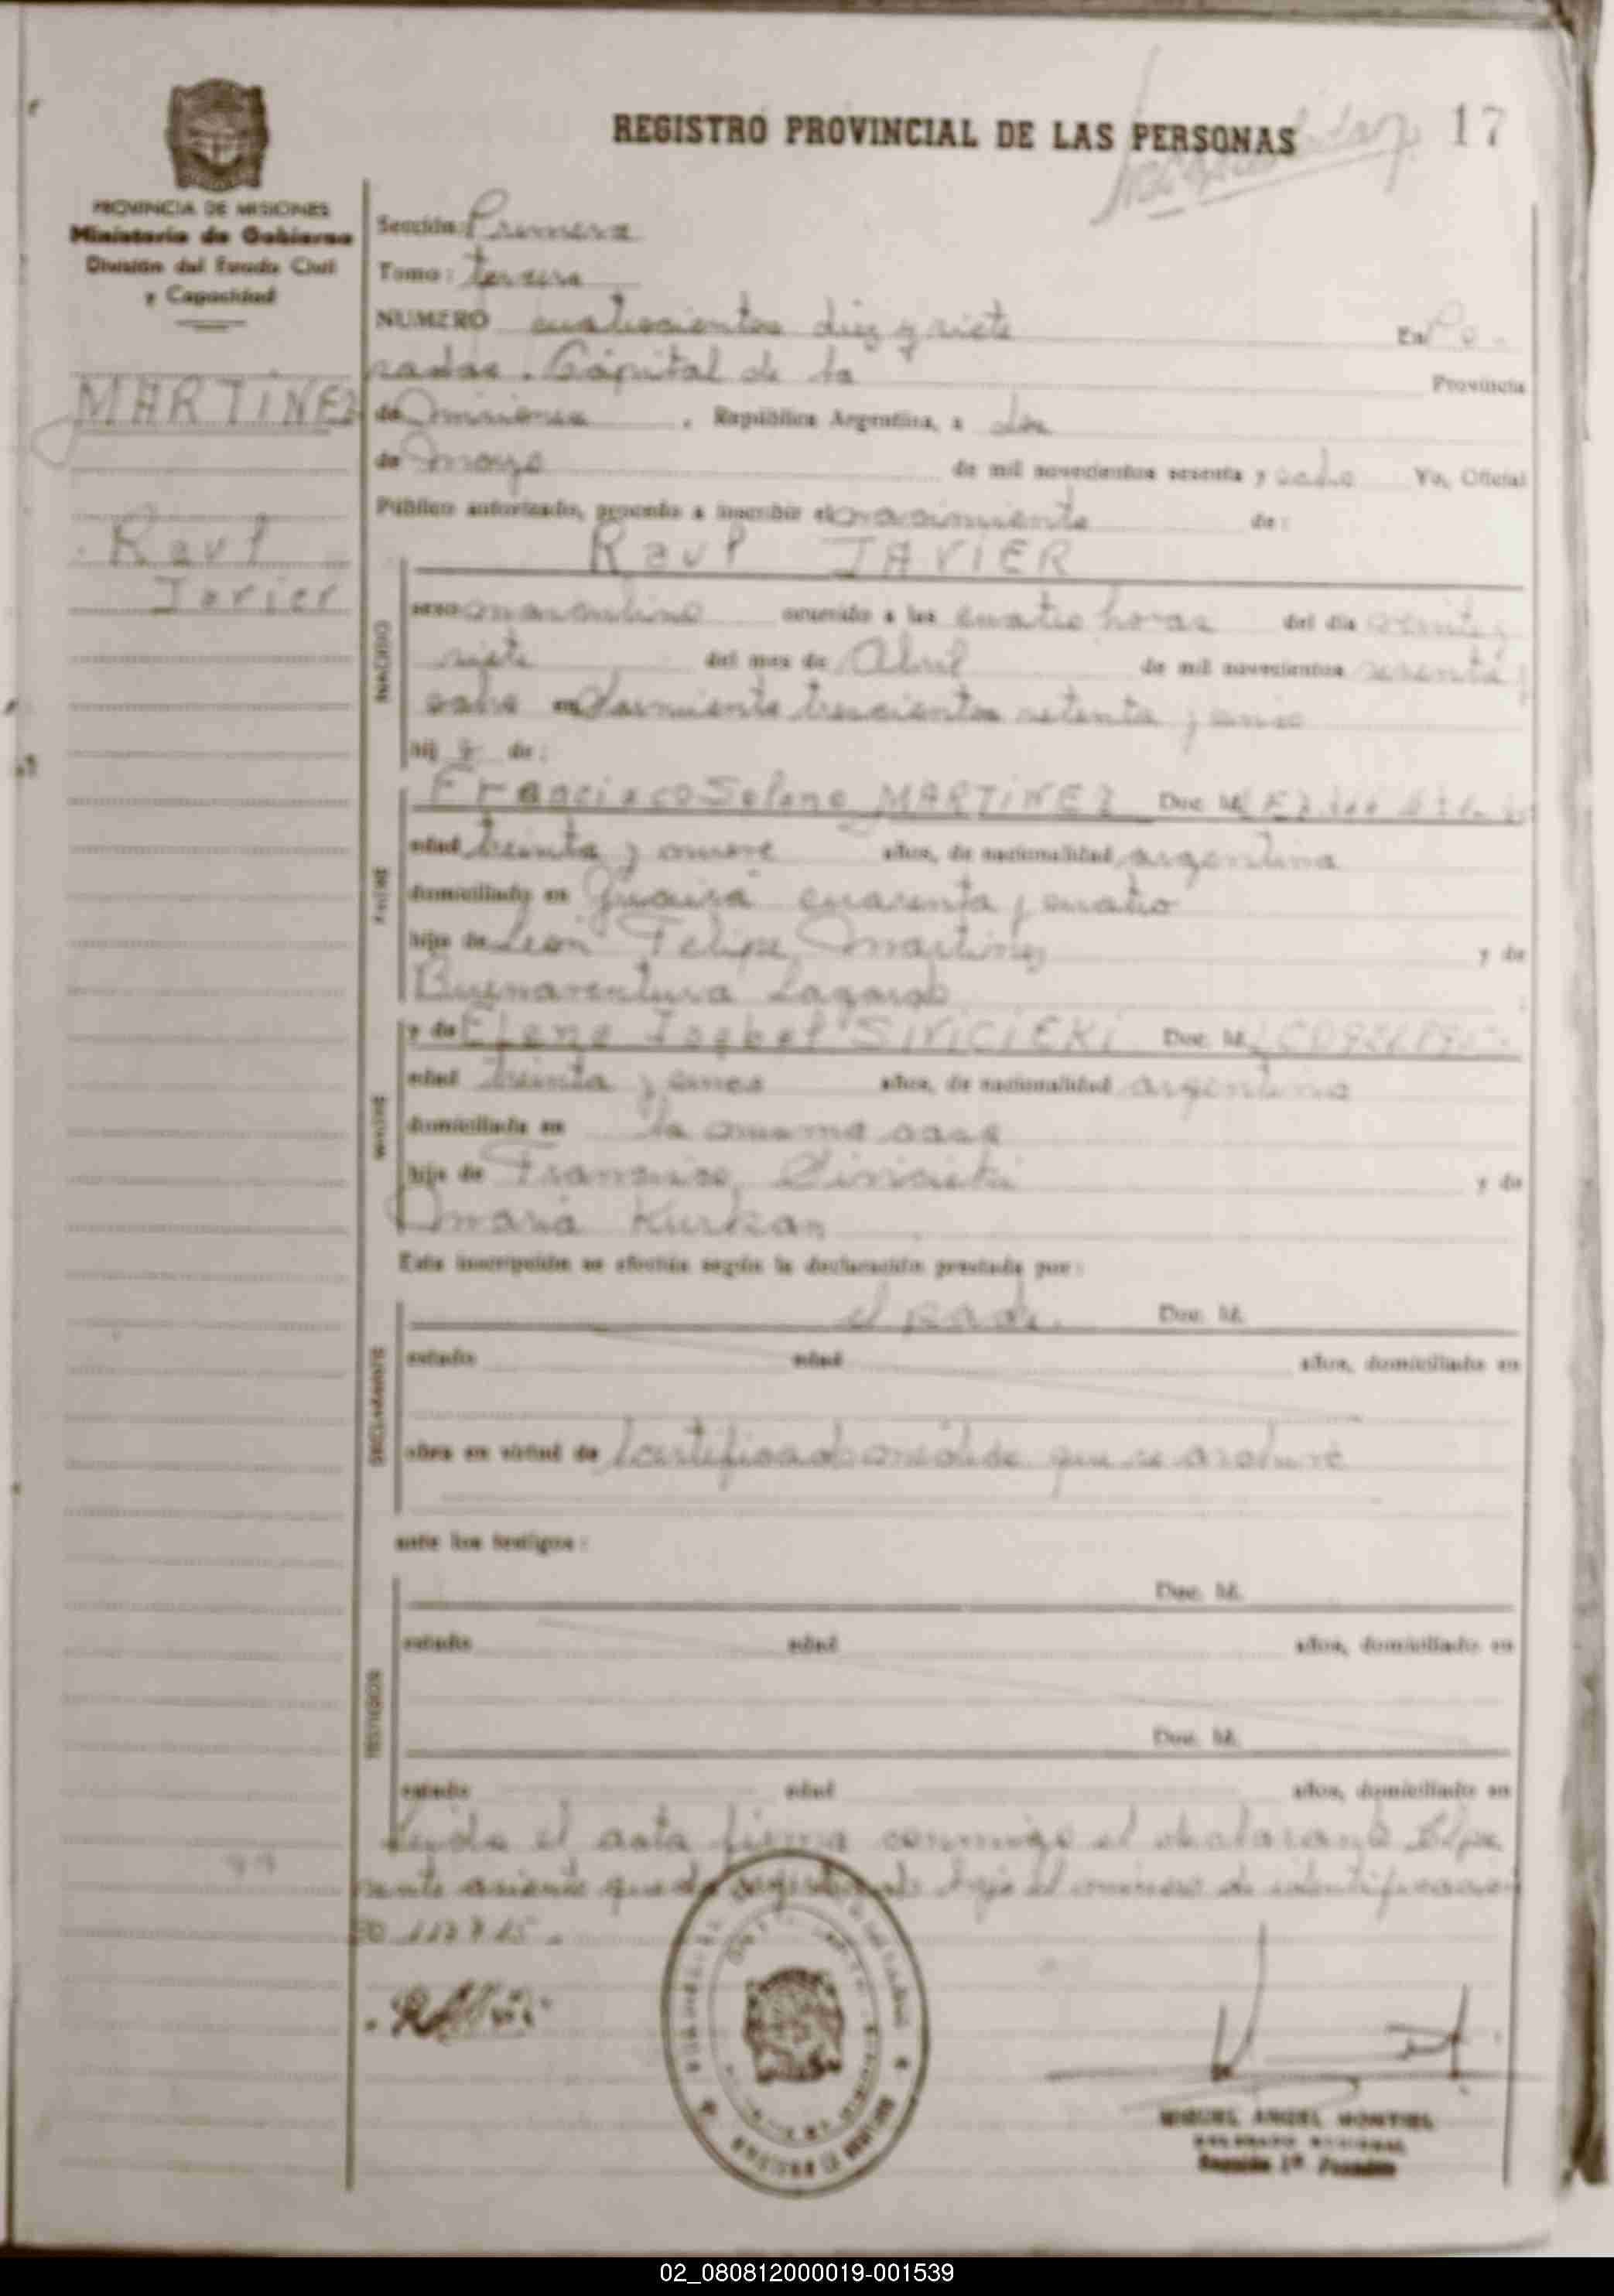 REGISTRO PROVINCIAL DE LAS PERSONAS
17
PROVINCIA DE MISIONES
Ministerio de Gobierno
División del Estado Civil
y Capacidad
MARTINEZ
Raul
Javier
Sección: Primera
Tomo: tercero
NUMERO cuatrocientos diez y siete En Po-
sadas. Capital de la Provincia
de Misiones, República Argentina, a dos
de mayo de mil novecientos sesenta y ocho Yo, Oficial
Público autorizado, procedo a inscribir el nacimiento de:
Raul JAVIER
INSCRIPTO
sexo masculino ocurrido a las cuatro horas del día veinte y
siete del mes de Abril de mil novecientos sesenta y
ocho en Sarmiento trescientos setenta y cinco
hijo de:
PADRE
Francisco Solano MARTINEZ Doc. Id.
edad treinta y nueve años, de nacionalidad argentina
domiciliado en Guairá cuarenta y cuatro
hijo de León Felipe Martinez y de
Buenaventura
MADRE
y de Elena Isabel SIVICIEKI Doc. Id.
edad treinta y cinco años, de nacionalidad argentina
domiciliada en la misma casa
hija de Francisco y de
Maria
Esta inscripción se efectúa según la declaración prestada por:
DECLARANTE
el padre. Doc. Id.
estado edad años, domiciliado en
obra en virtud de certificado que se
ante los testigos:
TESTIGOS
Doc. Id.
estado edad años, domiciliado en
Doc. Id.
estado edad años, domiciliado en
Leida el acta firma conmigo el declarante El pre
sente asiento queda registrado bajo el número de identificación
MIGUEL ANGEL MONTIEL
DELEGADO REGIONAL
Sección 1ª Posadas
02_080812000019-001539